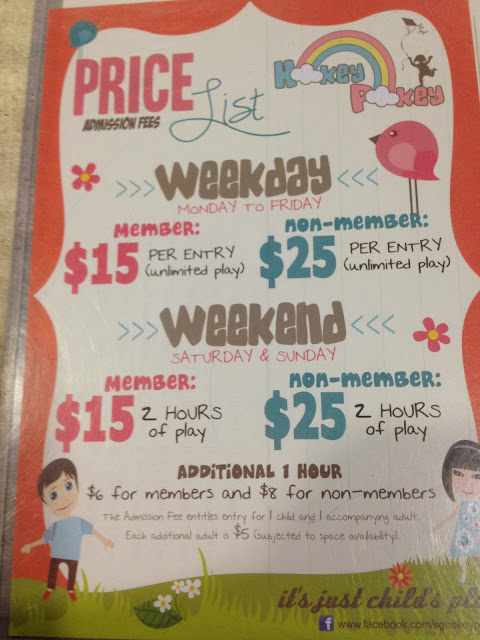 PRICE List
ADMISSION FEES
Hokey Pokey
>>> Weekday <<<
MONDAY TO FRIDAY
MEMBER:
$15 PER ENTRY (unlimited play)
non-member:
$25 PER ENTRY (unlimited play)
>>> Weekend <<<
SATURDAY & SUNDAY
MEMBER:
$15 2 HOURS of play
non-member:
$25 2 HOURS of play
ADDITIONAL 1 HOUR
$6 for members and $8 for non-members
The Admission Fee entitles entry for 1 child and 1 accompanying adult.
Each additional adult is $5 (subjected to space availability).
it's just child's
f www.facebook.com/